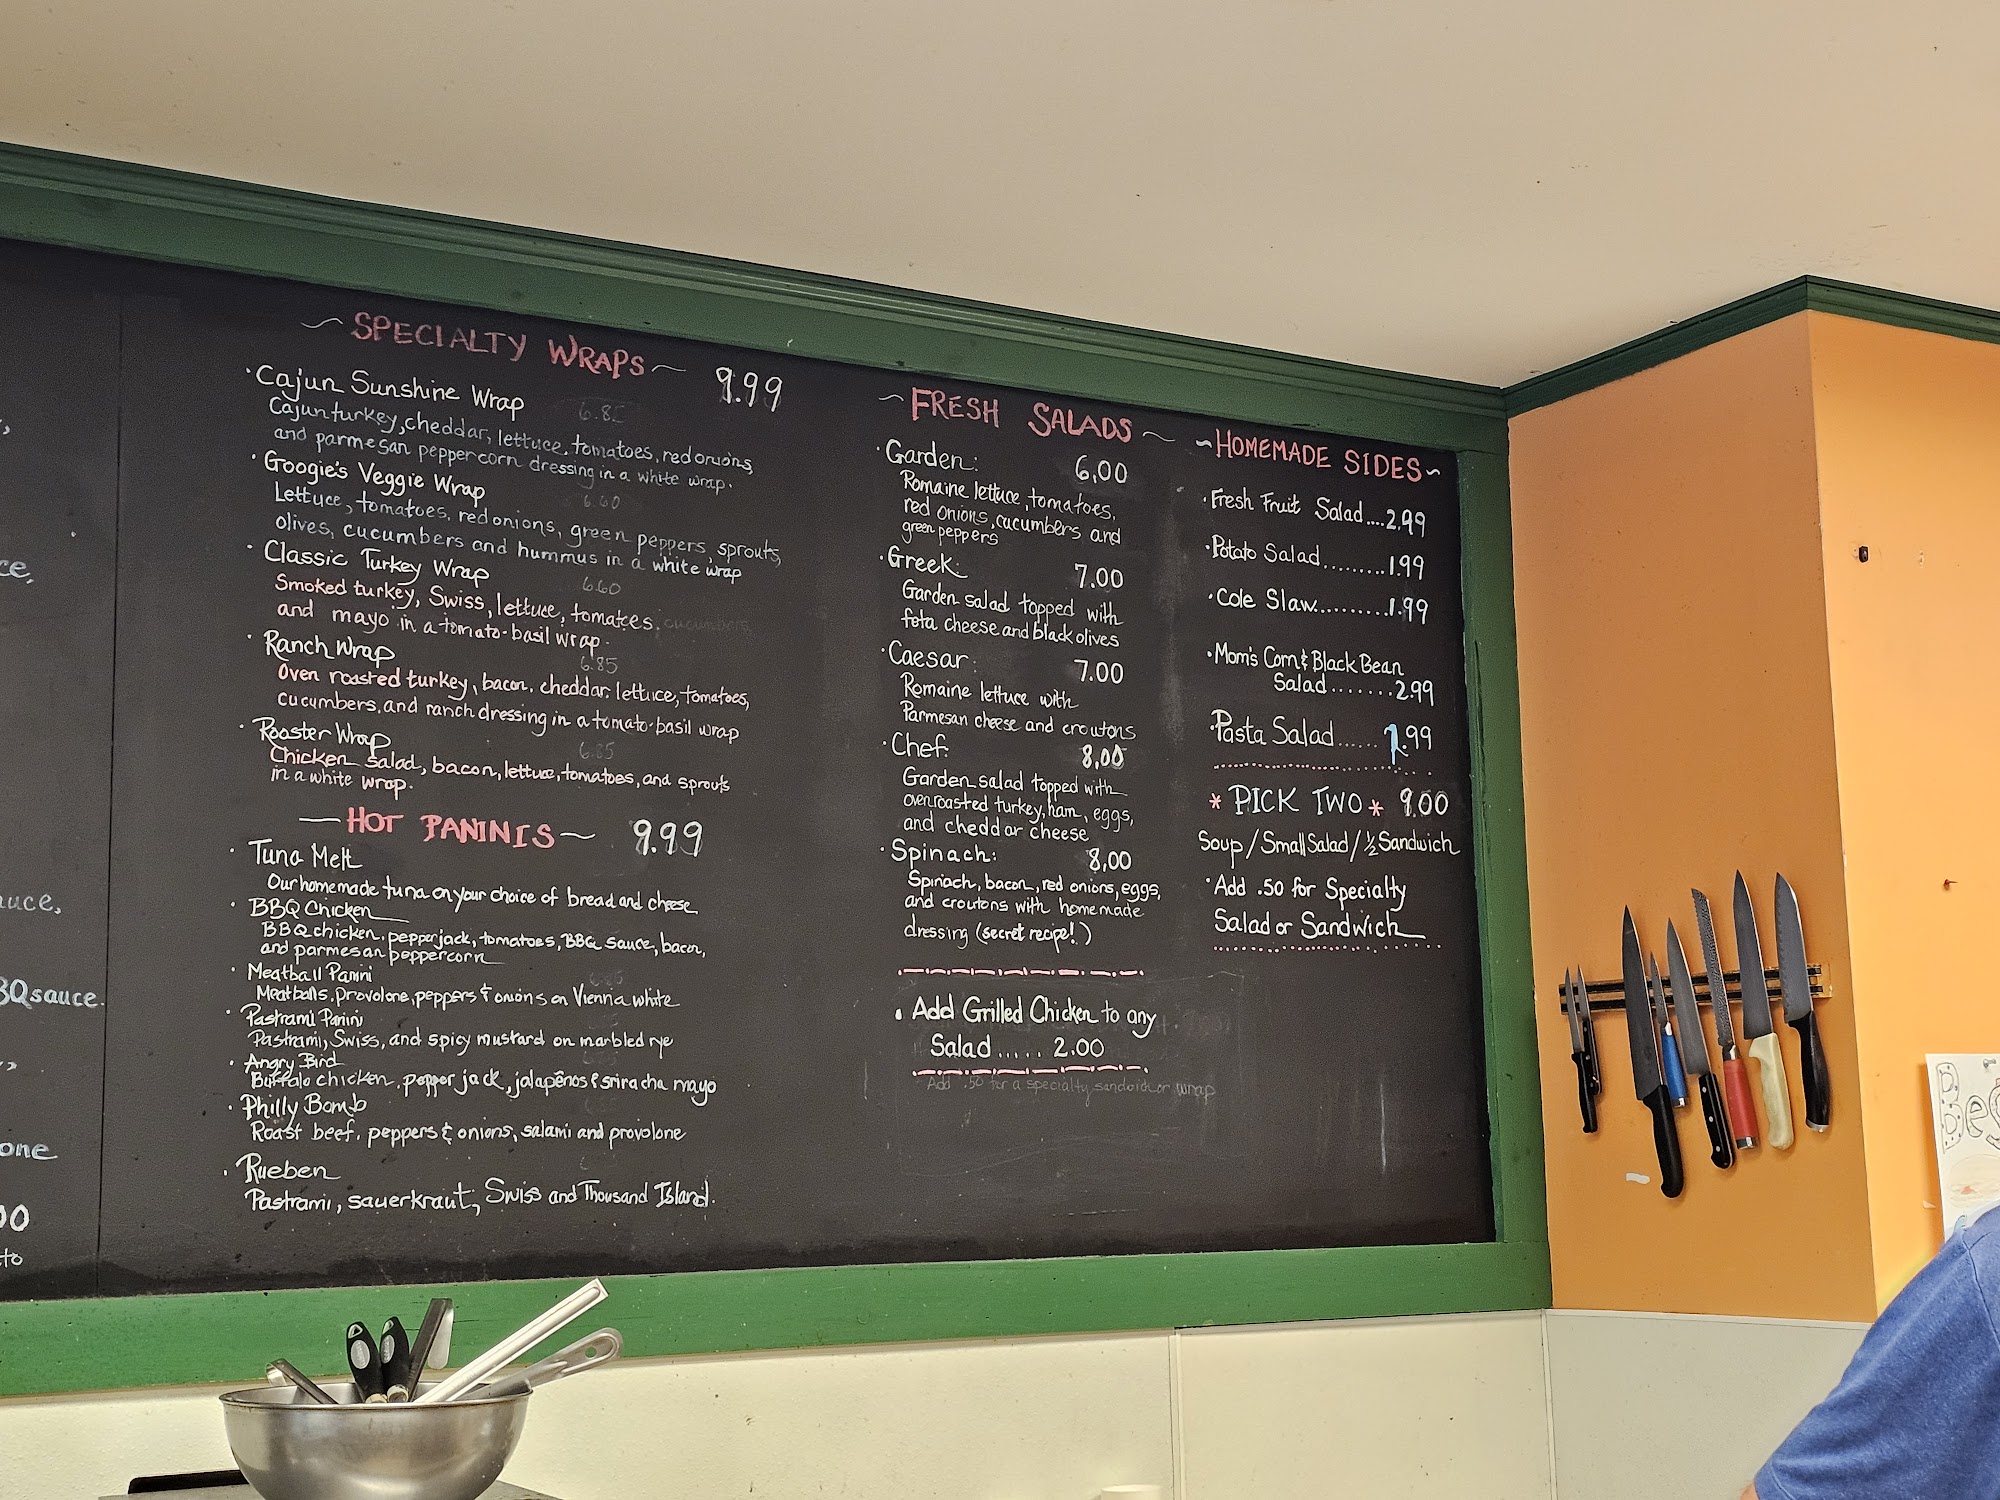 ce,
auce,
BQ sauce.
one
00
to
~ SPECIALTY WRAPS ~ 9.99
· Cajun Sunshine Wrap 6.85
Cajun turkey, cheddar, lettuce, tomatoes, red onions,
and parmesan peppercorn dressing in a white wrap.
· Googie's Veggie Wrap 6.60
Lettuce, tomatoes, red onions, green peppers, sprouts,
olives, cucumbers and hummus in a white wrap
· Classic Turkey Wrap 6.60
Smoked turkey, Swiss, lettuce, tomatoes, cucumbers,
and mayo in a tomato-basil wrap.
· Ranch Wrap 6.85
Oven roasted turkey, bacon, cheddar, lettuce, tomatoes,
cucumbers, and ranch dressing in a tomato-basil wrap
· Rooster Wrap 6.85
Chicken salad, bacon, lettuce, tomatoes, and sprouts
in a white wrap.
— HOT PANINIS ~ 9.99
· Tuna Melt
Our homemade tuna on your choice of bread and cheese
· BBQ Chicken
BBQ chicken, pepperjack, tomatoes, BBQ sauce, bacon,
and parmesan peppercorn
· Meatball Panini
Meatballs, provolone, peppers & onions on Vienna white
· Pastrami Panini
Pastrami, Swiss, and spicy mustard on marbled rye
· Angry Bird
Buffalo chicken, pepper jack, jalapeños & sriracha mayo
· Philly Bomb
Roast beef, peppers & onions, salami and provolone
· Rueben
Pastrami, sauerkraut, Swiss and Thousand Island.
~ FRESH SALADS ~
· Garden: 6.00
Romaine lettuce, tomatoes,
red onions, cucumbers and
green peppers
· Greek: 7.00
Garden salad topped with
feta cheese and black olives
· Caesar: 7.00
Romaine lettuce with
Parmesan cheese and croutons
· Chef: 8.00
Garden salad topped with
oven roasted turkey, ham, eggs,
and cheddar cheese
· Spinach: 8.00
Spinach, bacon, red onions, eggs,
and croutons with homemade
dressing (secret recipe!)
· Add Grilled Chicken to any
Salad..... 2.00
Add .50 for a specialty sandwich or wrap
~ HOMEMADE SIDES ~
· Fresh Fruit Salad....2.99
· Potato Salad.........1.99
· Cole Slaw..........1.99
· Mom's Corn & Black Bean
Salad.......2.99
· Pasta Salad...... 1.99
* PICK TWO * 9.00
Soup / Small Salad / ½ Sandwich
· Add .50 for Specialty
Salad or Sandwich
Beg